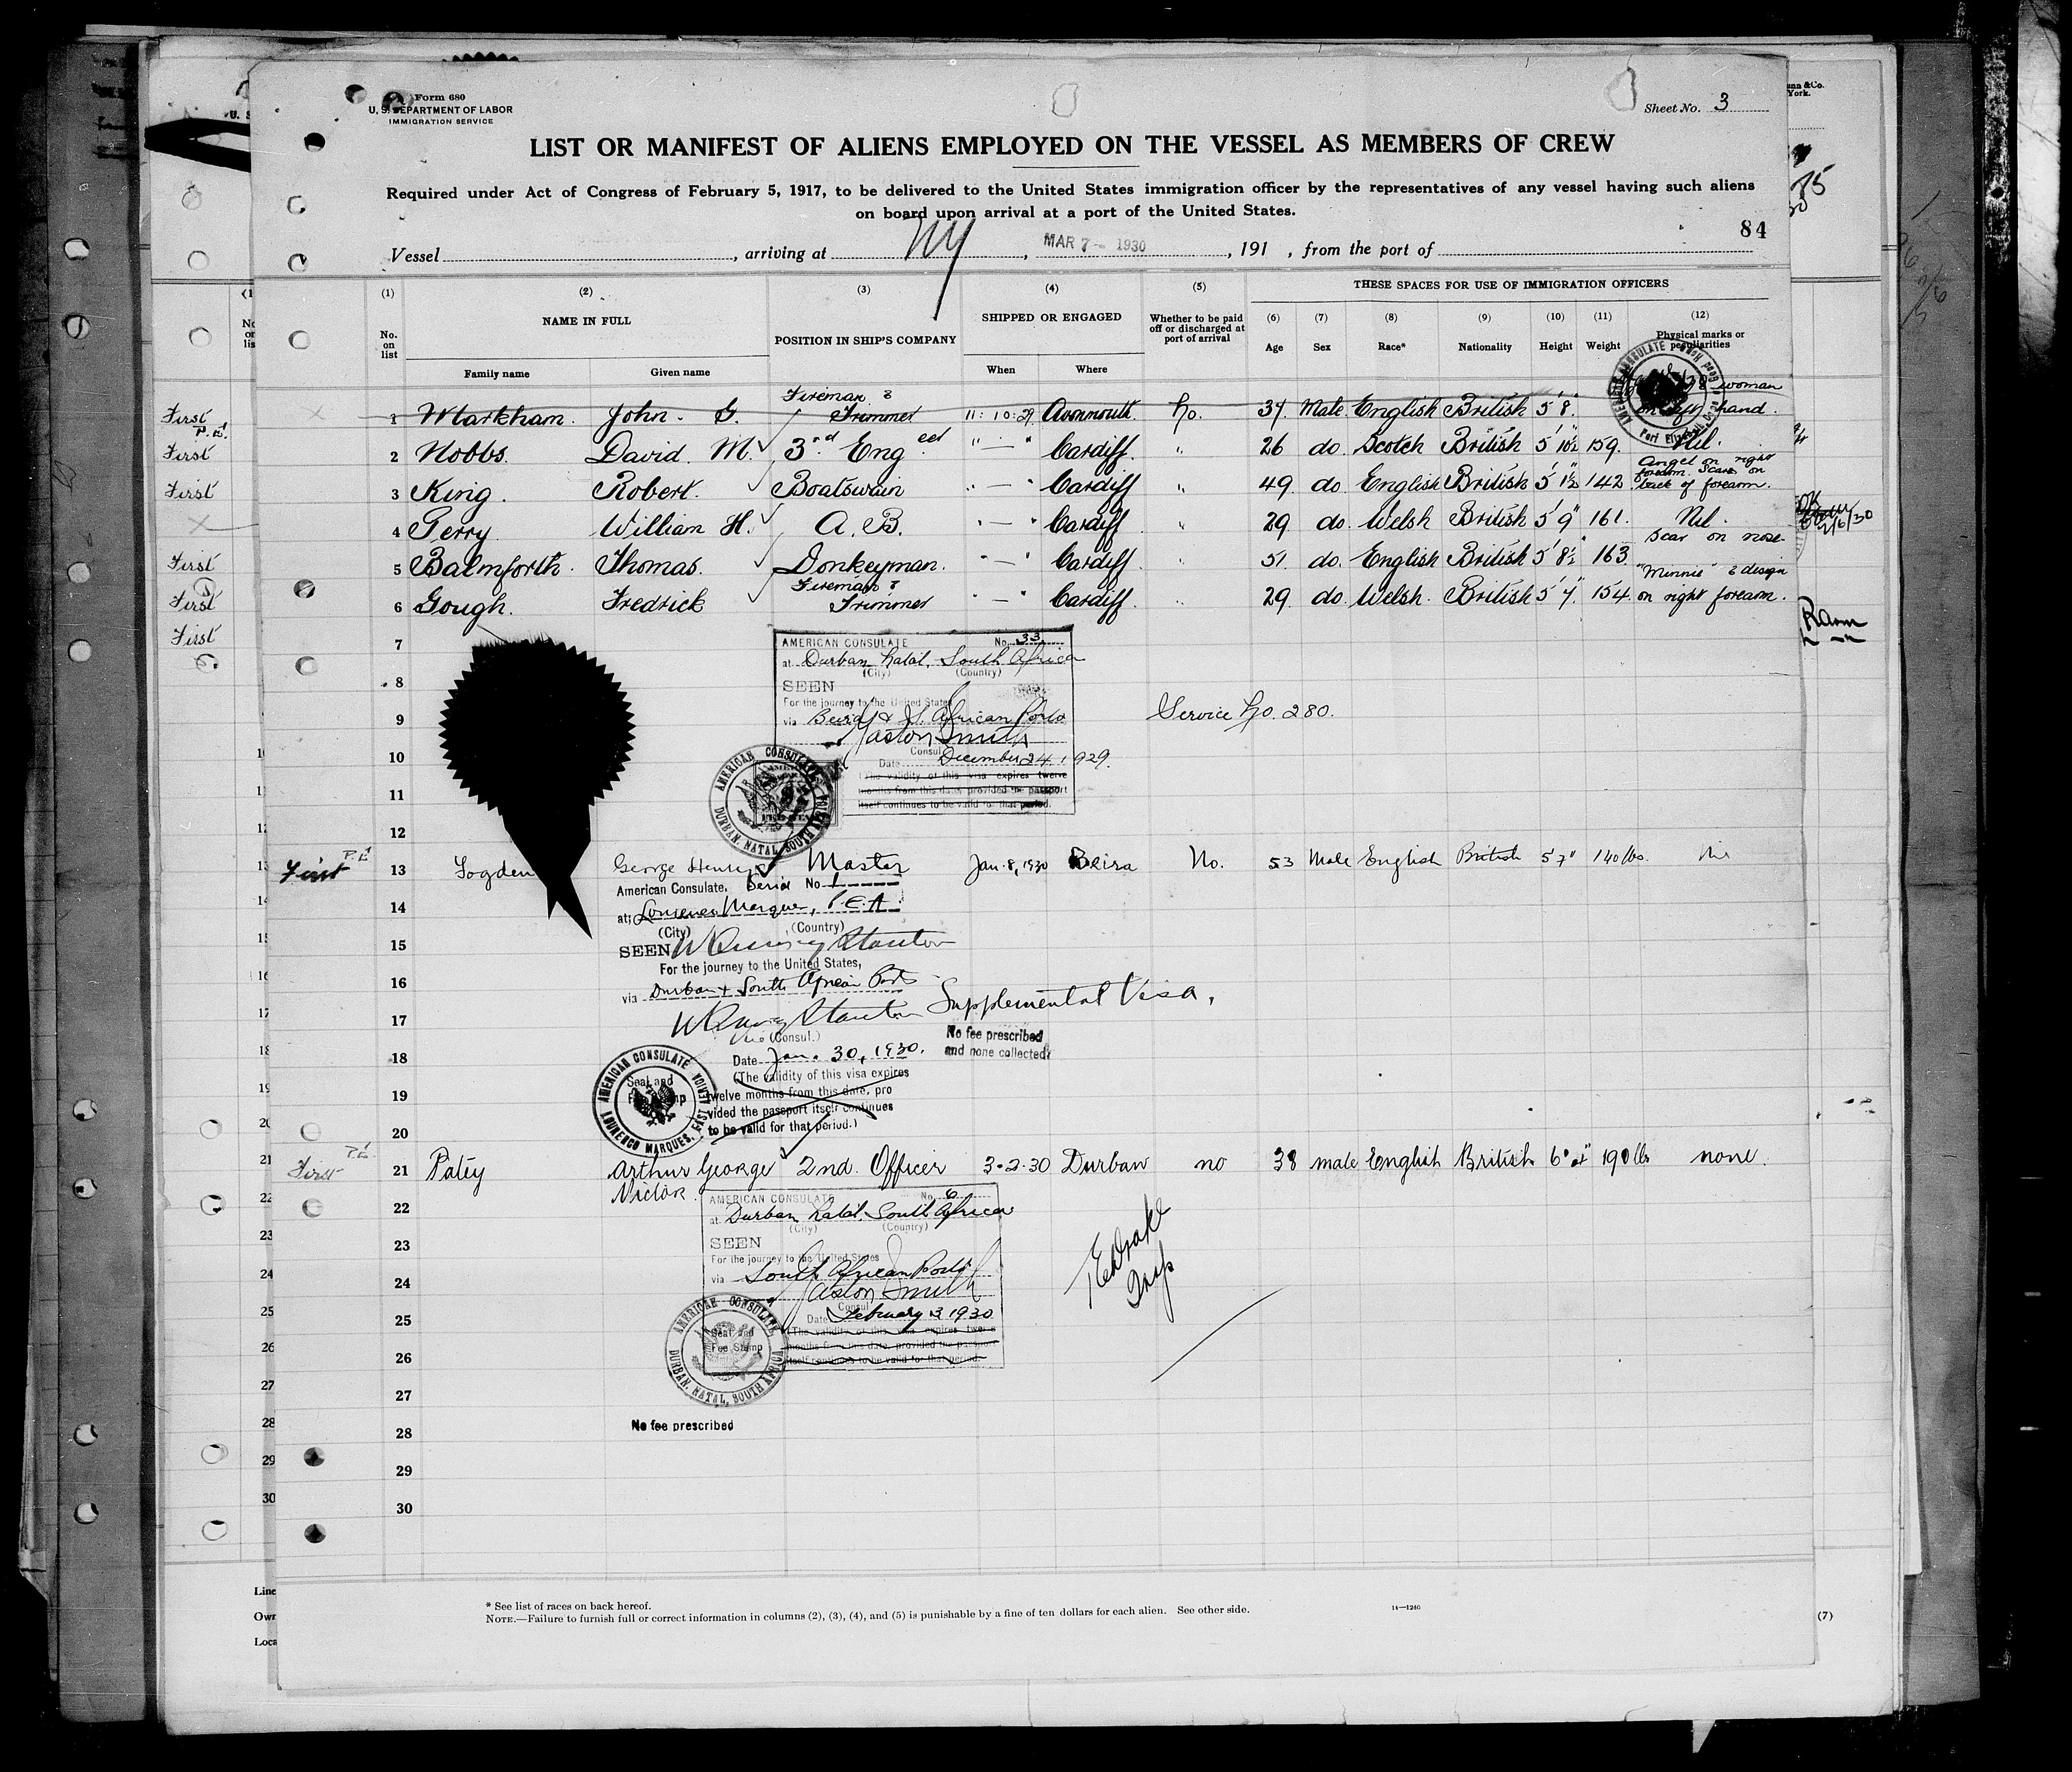 Form 680
U. S. DEPARTMENT OF LABOR
IMMIGRATION SERVICE
Sheet No. 3
LIST OR MANIFEST OF ALIENS EMPLOYED ON THE VESSEL AS MEMBERS OF CREW
Required under Act of Congress of February 5, 1917, to be delivered to the United States immigration officer by the representatives of any vessel having such aliens
on board upon arrival at a port of the United States.
84
Vessel , arriving at NY , MAR 7 - 1930 , 191 , from the port of
(1) (2) (3) (4) (5) THESE SPACES FOR USE OF IMMIGRATION OFFICERS
No. on list NAME IN FULL POSITION IN SHIP'S COMPANY SHIPPED OR ENGAGED Whether to be paid off or discharged at port of arrival (6) (7) (8) (9) (10) (11) (12)
Age Sex Race* Nationality Height Weight Physical marks or peculiarities
Family name Given name When Where
First 1 Markham. John. G. Fireman & Trimmer 11: 10: 29 Avonmouth. No. 37 Male. English British 5' 8" woman hand.
P.E. First 2 Nobbs. David. M. 3rd Eng eer " — " Cardiff. " 26 do. Scotch British 5' 10½" 159. Nil.
First 3 King. Robert. Boatswain " — " Cardiff " 49 do. English British 5' 1½" 142 Angel on right forearm. Scars on back of forearm.
4 Perry William H. A. B. " — " Cardiff " 29 do. Welsh British 5' 9" 161. Nil.
First 5 Balmforth. Thomas. Donkeyman. " — " Cardiff. " 51 do. English British 5' 8½" 163 Scar on nose.
First 6 Gough. Fredrick Fireman & Trimmer " — " Cardiff. " 29 do. Welsh. British 5' 7" 154 "Minnie" & design on right forearm.
First 7
AMERICAN CONSULATE No. 33
at Durban Natal, South Africa
(City) (Country)
8
SEEN
For the journey to the United States
9
via Beira & S. African Ports
Service No. 280.
Gaston Smith
Consul
10
Date December 24, 1929.
(The validity of this visa expires twelve
months from this date, provided the passport
itself continues to be valid for that period.
11
AMERICAN CONSULATE
DURBAN, NATAL, SOUTH AFRICA
12
First P.E. 13 Logden George Henry Master Jan. 8, 1930 Beira No. 53 Male English British 5'7" 140 lbs. Nil
American Consulate, Serial No 1
14
at Lourenco Marques, P.E.A.
(City) (Country)
15
SEEN
For the journey to the United States,
16
via Durban & South African Ports
Supplemental Visa,
17
(Consul.)
No fee prescribed
and none collected.
18
Date Jan. 30, 1930.
(The validity of this visa expires
19
twelve months from this date, pro
vided the passport itself continues
20
to be valid for that period.)
AMERICAN CONSULATE
LOURENCO MARQUES, EAST AFRICA
Seal and
Fee Stamp
First P.E. 21 Patey Arthur George Victor 2nd. Officer 3.2.30 Durban no 38 male English British 6' 190 lbs none.
22
AMERICAN CONSULATE No. 6
at Durban Natal, South Africa
(City) (Country)
23
SEEN
For the journey to the United States
24
via South African Ports
Gaston Smith
Consul
25
Date February 13 1930
(The validity of this visa expires twelve
months from this date, provided the passport
itself continues to be valid for that period.
26
AMERICAN CONSULATE
DURBAN, NATAL, SOUTH AFRICA
Seal and
Fee Stamp
Drake
Insp
27
No fee prescribed
28
29
30
* See list of races on back hereof.
NOTE.—Failure to furnish full or correct information in columns (2), (3), (4), and (5) is punishable by a fine of ten dollars for each alien. See other side.
14—1240
(7)